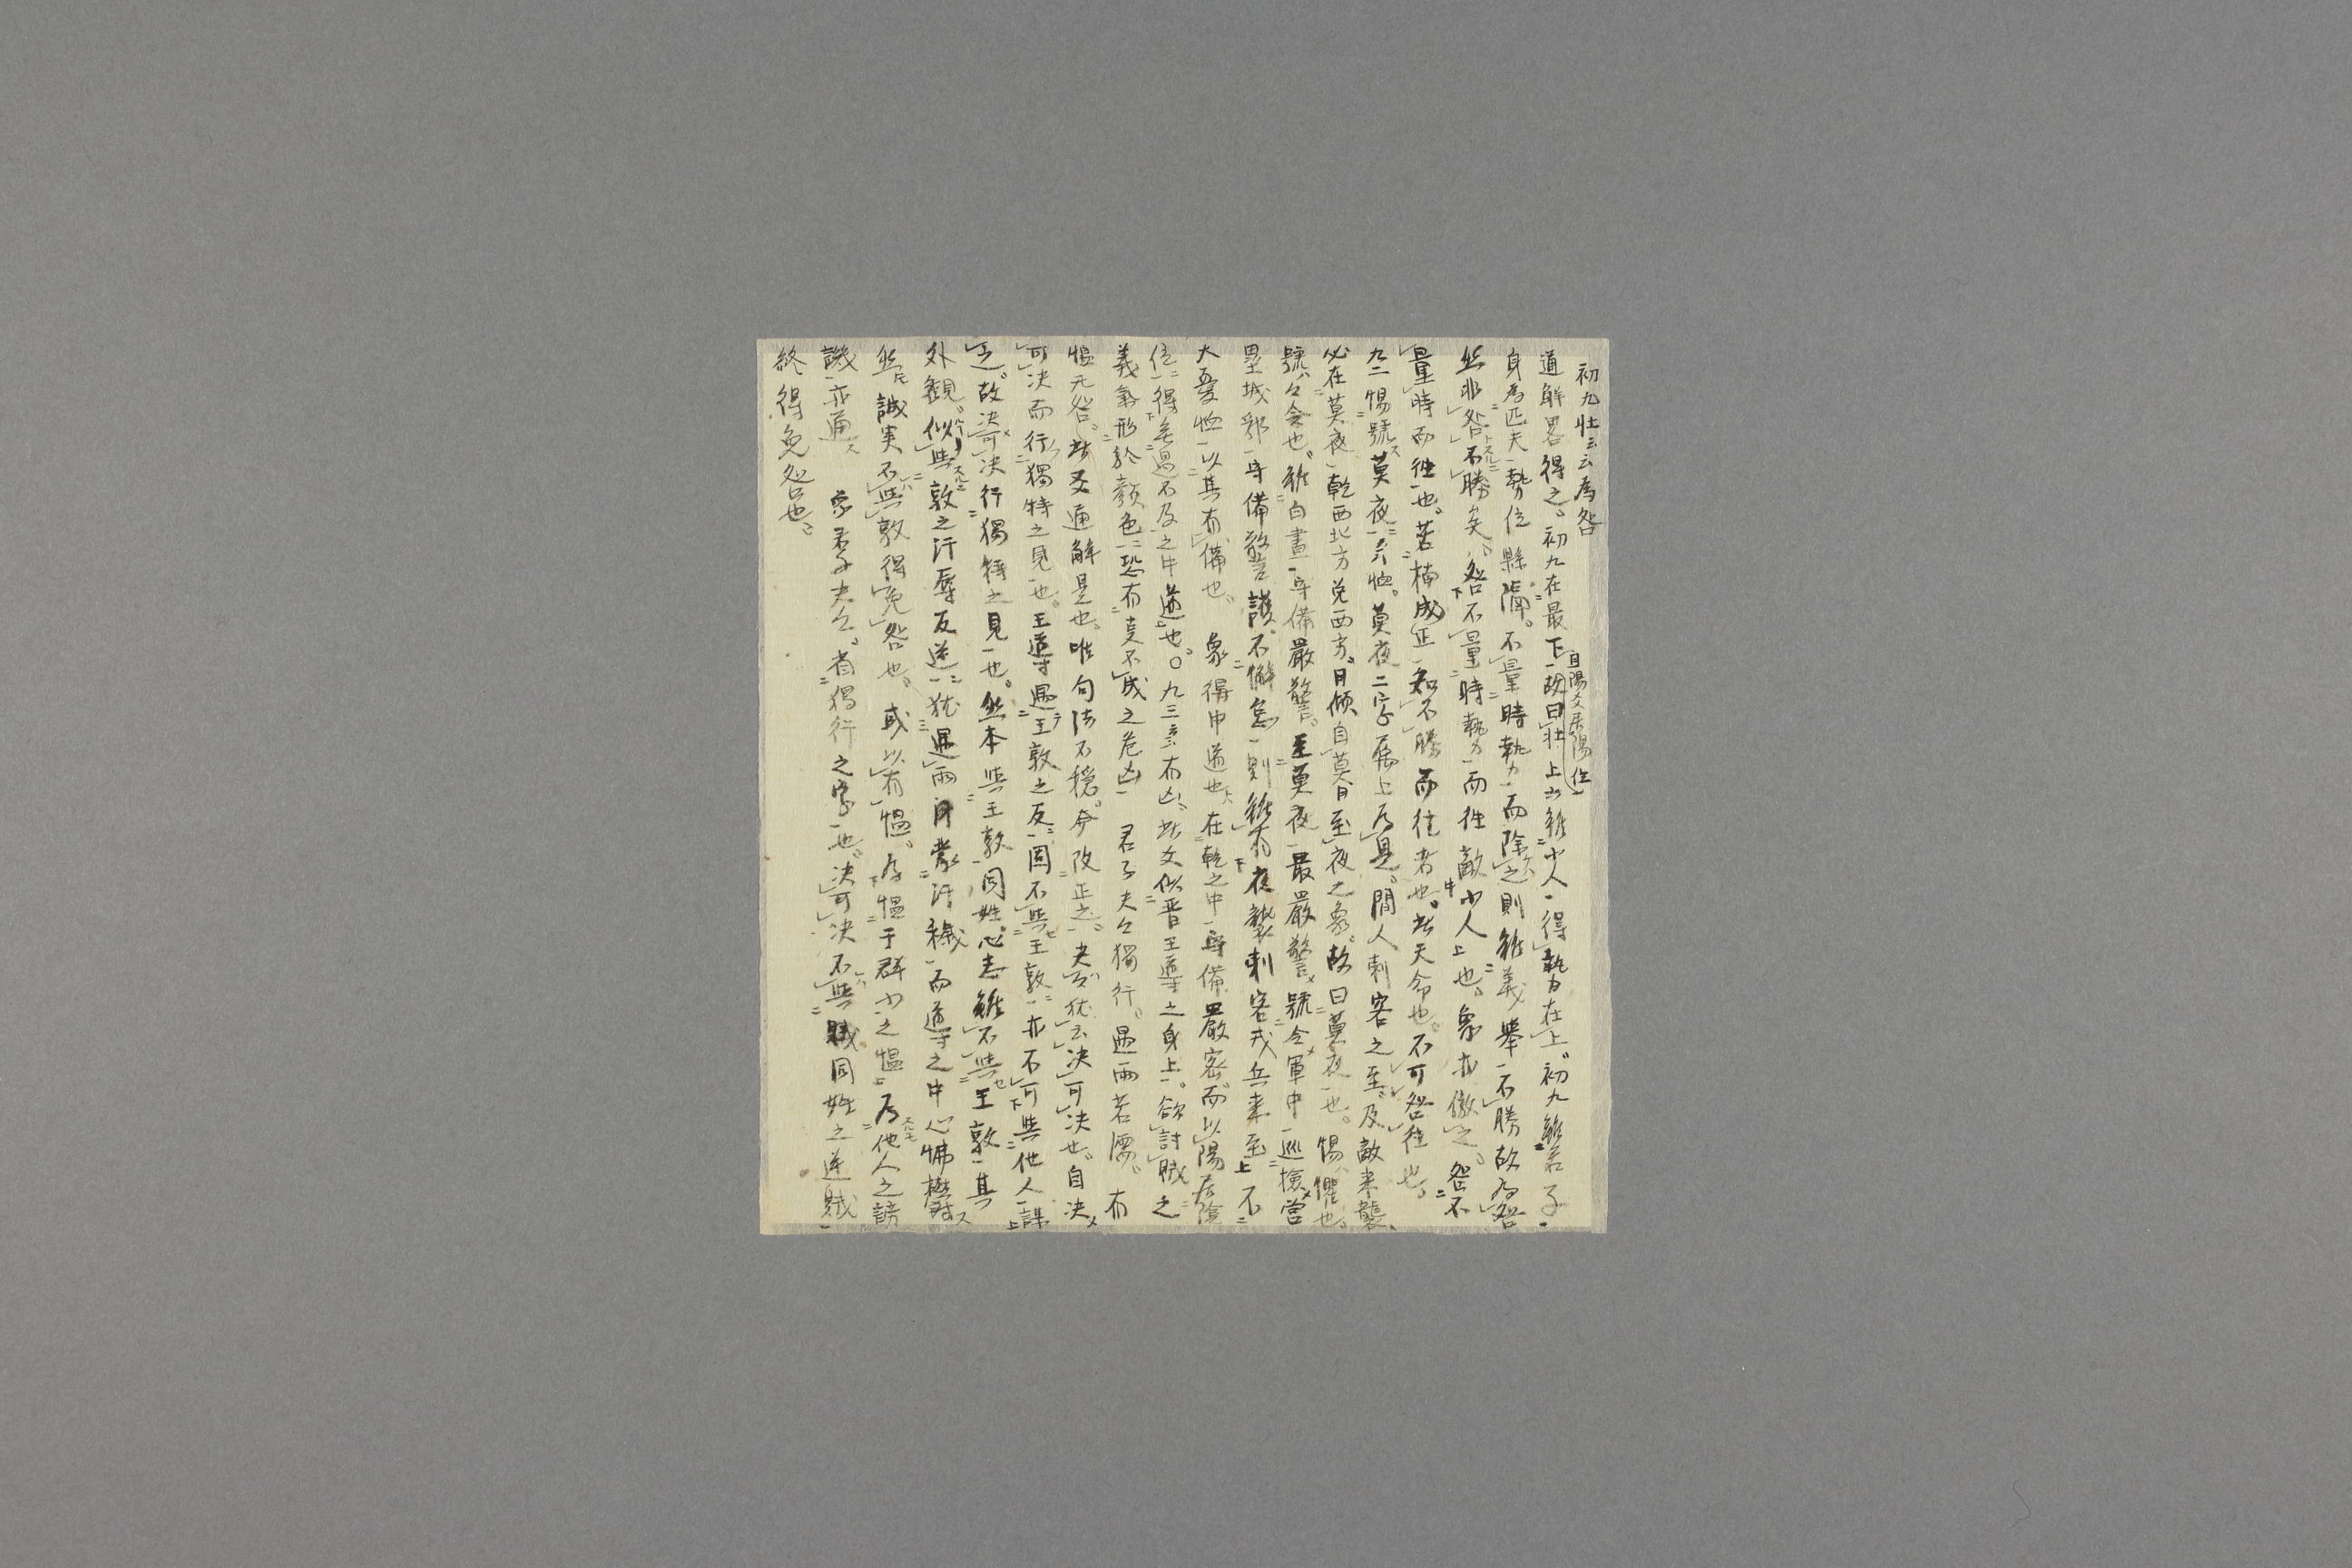 初九壮云云為咎
通解畧得之。初九在最下一故曰壮。上六雖小人一得勢在上。初九雖君子
且陽爻居陽位
身為匹夫一勢位懸隔。不量時勢一而除之則雖義舉一不勝故為咎
然非咎不勝矣。咎不量時勢一而往敵小人上也。象亦倣之。咎不
量時而往一也。若楠成正一知不勝而往者也。此天命也。不可咎往也。
九二惕號莫夜一有恤。莫夜二字属上為是。間人刺客之至。及敵来襲、
必在莫夜一乾西北方兌西方。日傾自莫日至夜之象。故曰莫夜一也。惕、懼也。
號、号令也。雖白晝一守備嚴警。至莫夜一最嚴警號令軍中一巡撿営
塁城郭一守備警護。不懈怠一則雖有夜襲刺客戎兵来至上不
大憂恤一以其有備也。　象得中道也、在乾之中一守備嚴密而以陽居陰
位一得無過不及之中道也。○九三云云有凶、此文似晋王導之身上一。欲討賊之
義氣形於顔色一恐有事不成之危凶一　君子夬々獨行。遇雨若濡。有
慍无咎。此爻通解是也。唯句法不穏。今改正之。夬夬猶云決可決也。自決
可決而行獨特之見一也。王導遇王敦之反一固不與王敦一亦不可與他人一謀
之。故決可決行獨特之見一也。然本與王敦一同姓。心志雖不與王敦一其
外観似與敦之汙辱反逆一猶遇雨身蒙汙穢一而導之中心怫鬱
然。誠実不與敦得免咎也。或以有慍。為慍于群小之慍一為他人之謗
譏一亦通　象君子夬々。省獨行之字一也。決可決不與賊同姓之逆賊一
終得免咎也。